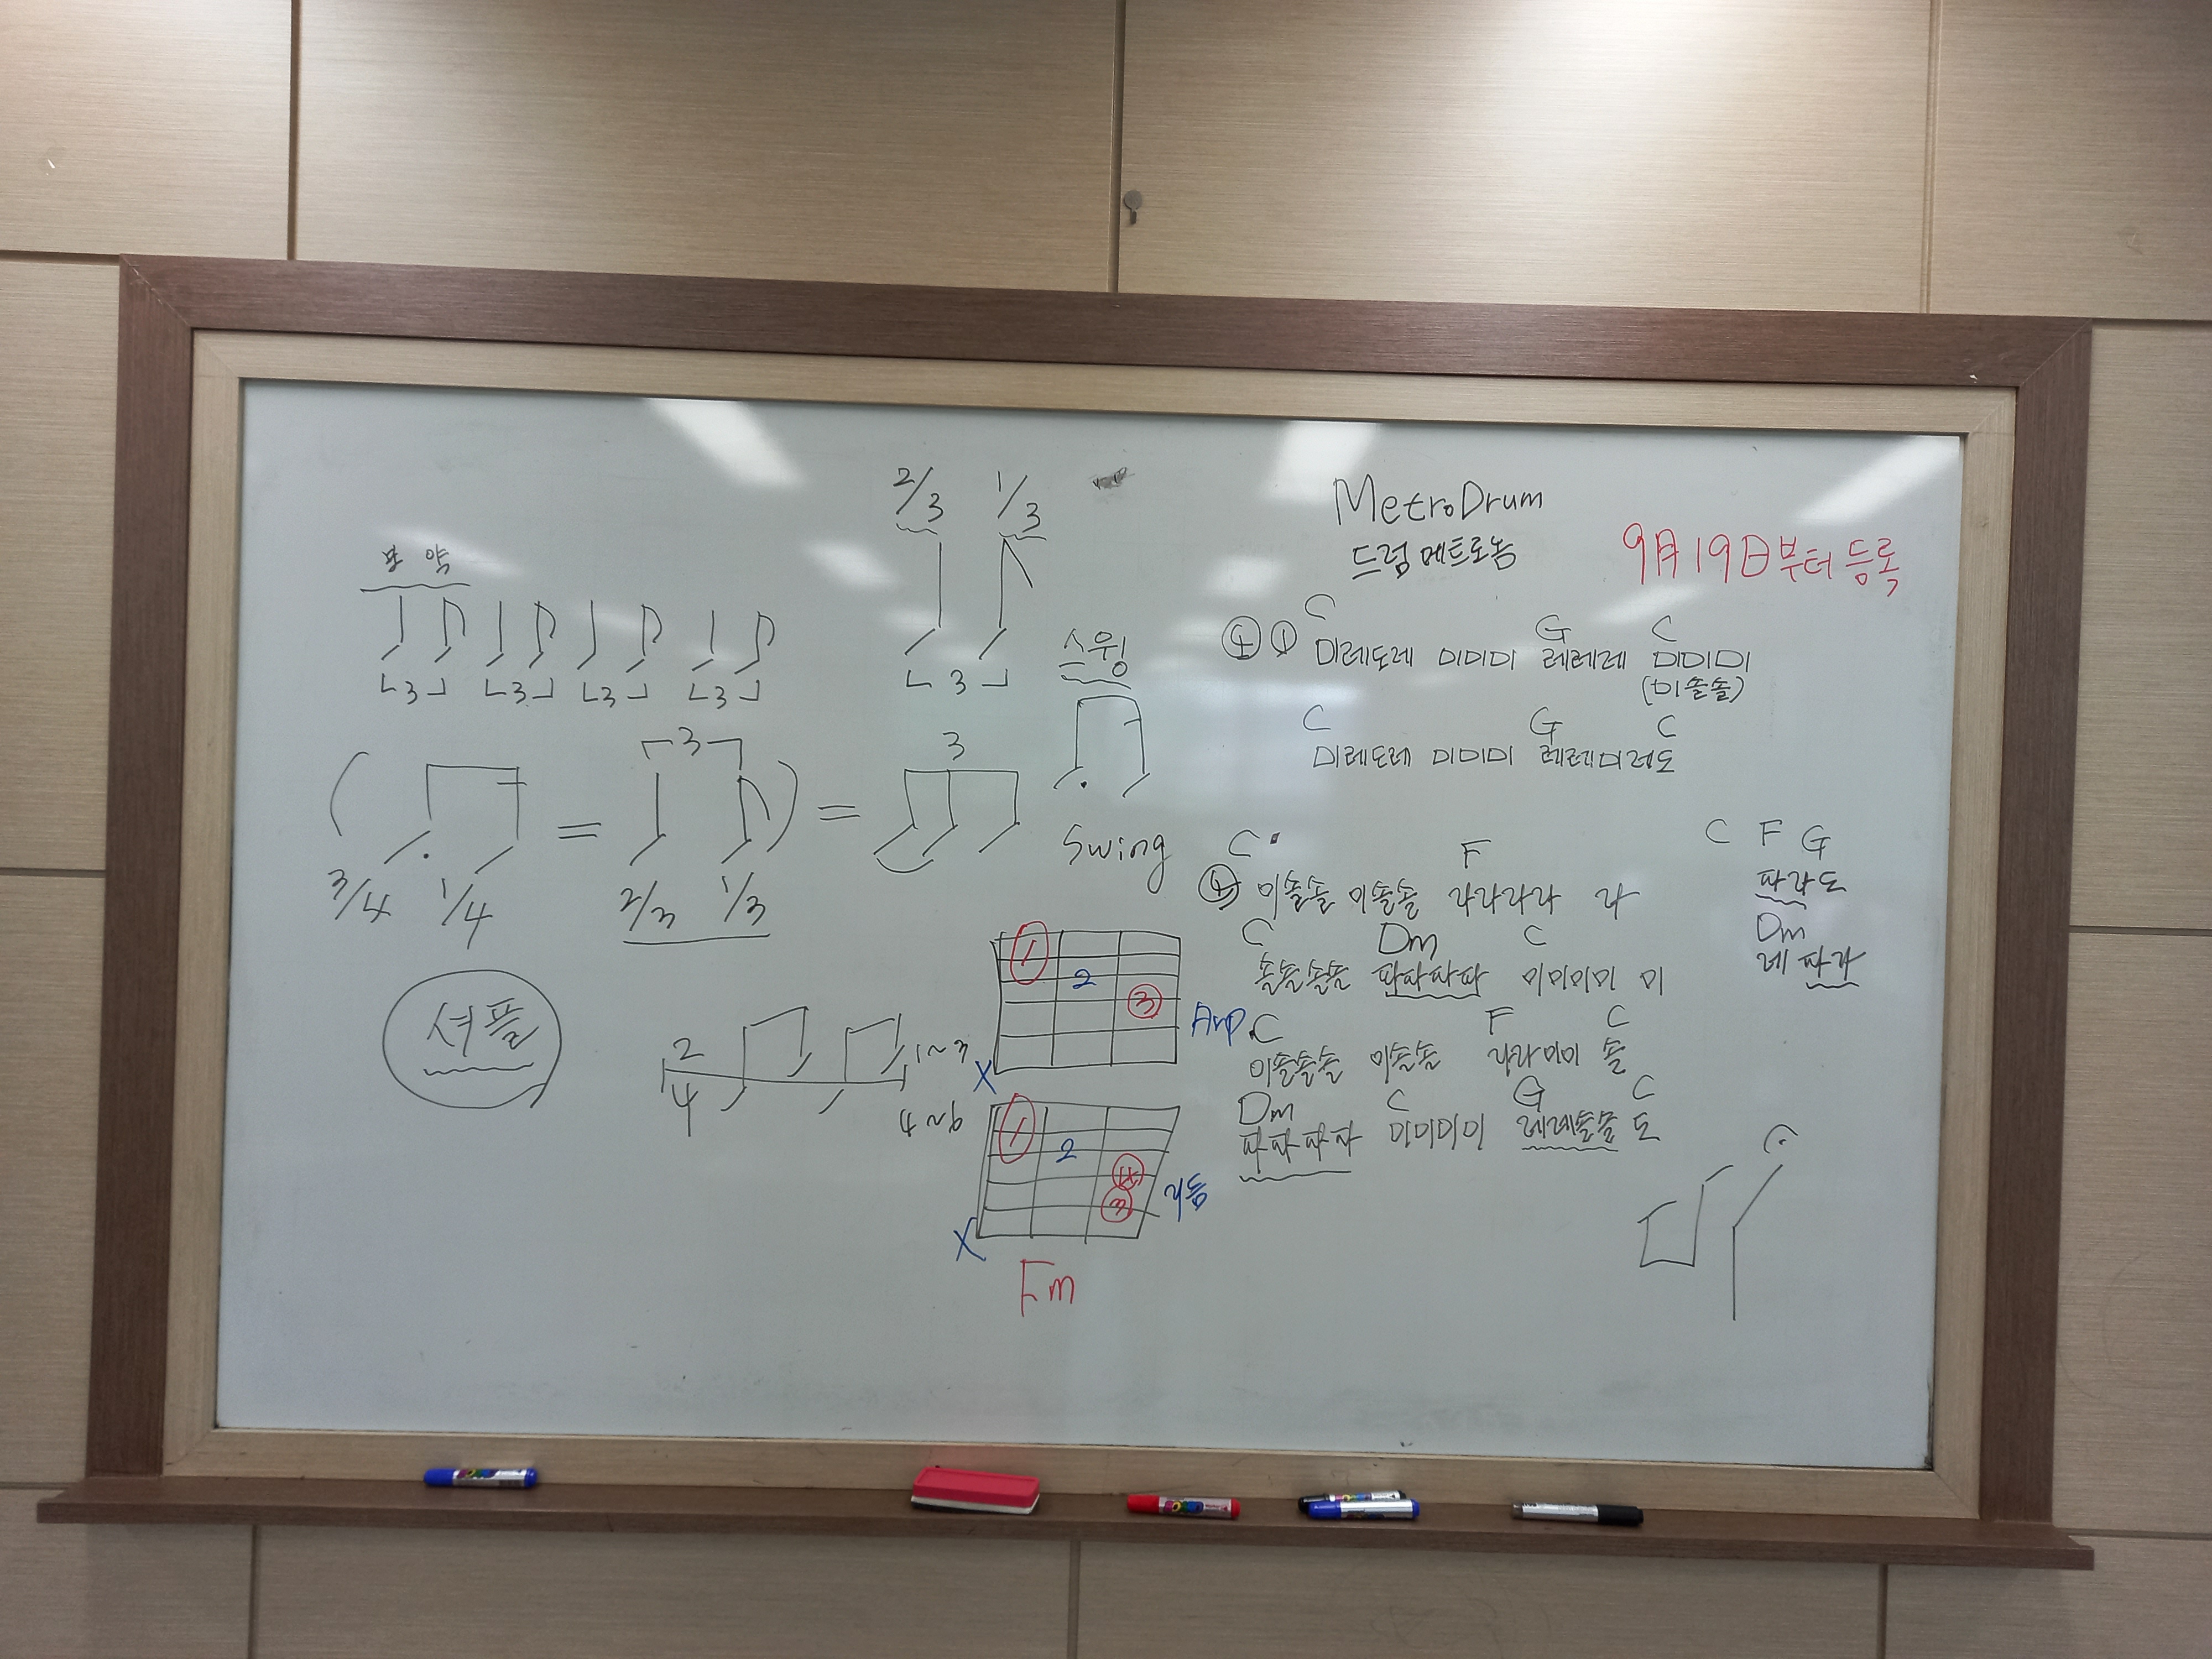 2/3 1/3
MetroDrum
드럼메트로놈
9月19日부터 등록
3 3 3 3
3
스윙
Swing
3/4 1/4 = 2/3 1/3 = 3
3
셔플
2/4
1~3
4~6
1 2 3
X
Arp.
1 2 4 3
X
리듬
Fm
C G C
④ ① 미레도레 미미미 레레레 미미미
(미솔솔)
C G C
미레도레 미미미 레레미레도
C F
④ 미솔솔 미솔솔 라라라라 라
C Dm C
솔솔솔솔 파파파파 미미미미 미
C F C
미솔솔솔 미솔솔 라라미미 솔
Dm C G C
파파파파 미미미미 레레솔솔 도
C F G
파라도
Dm
레파라